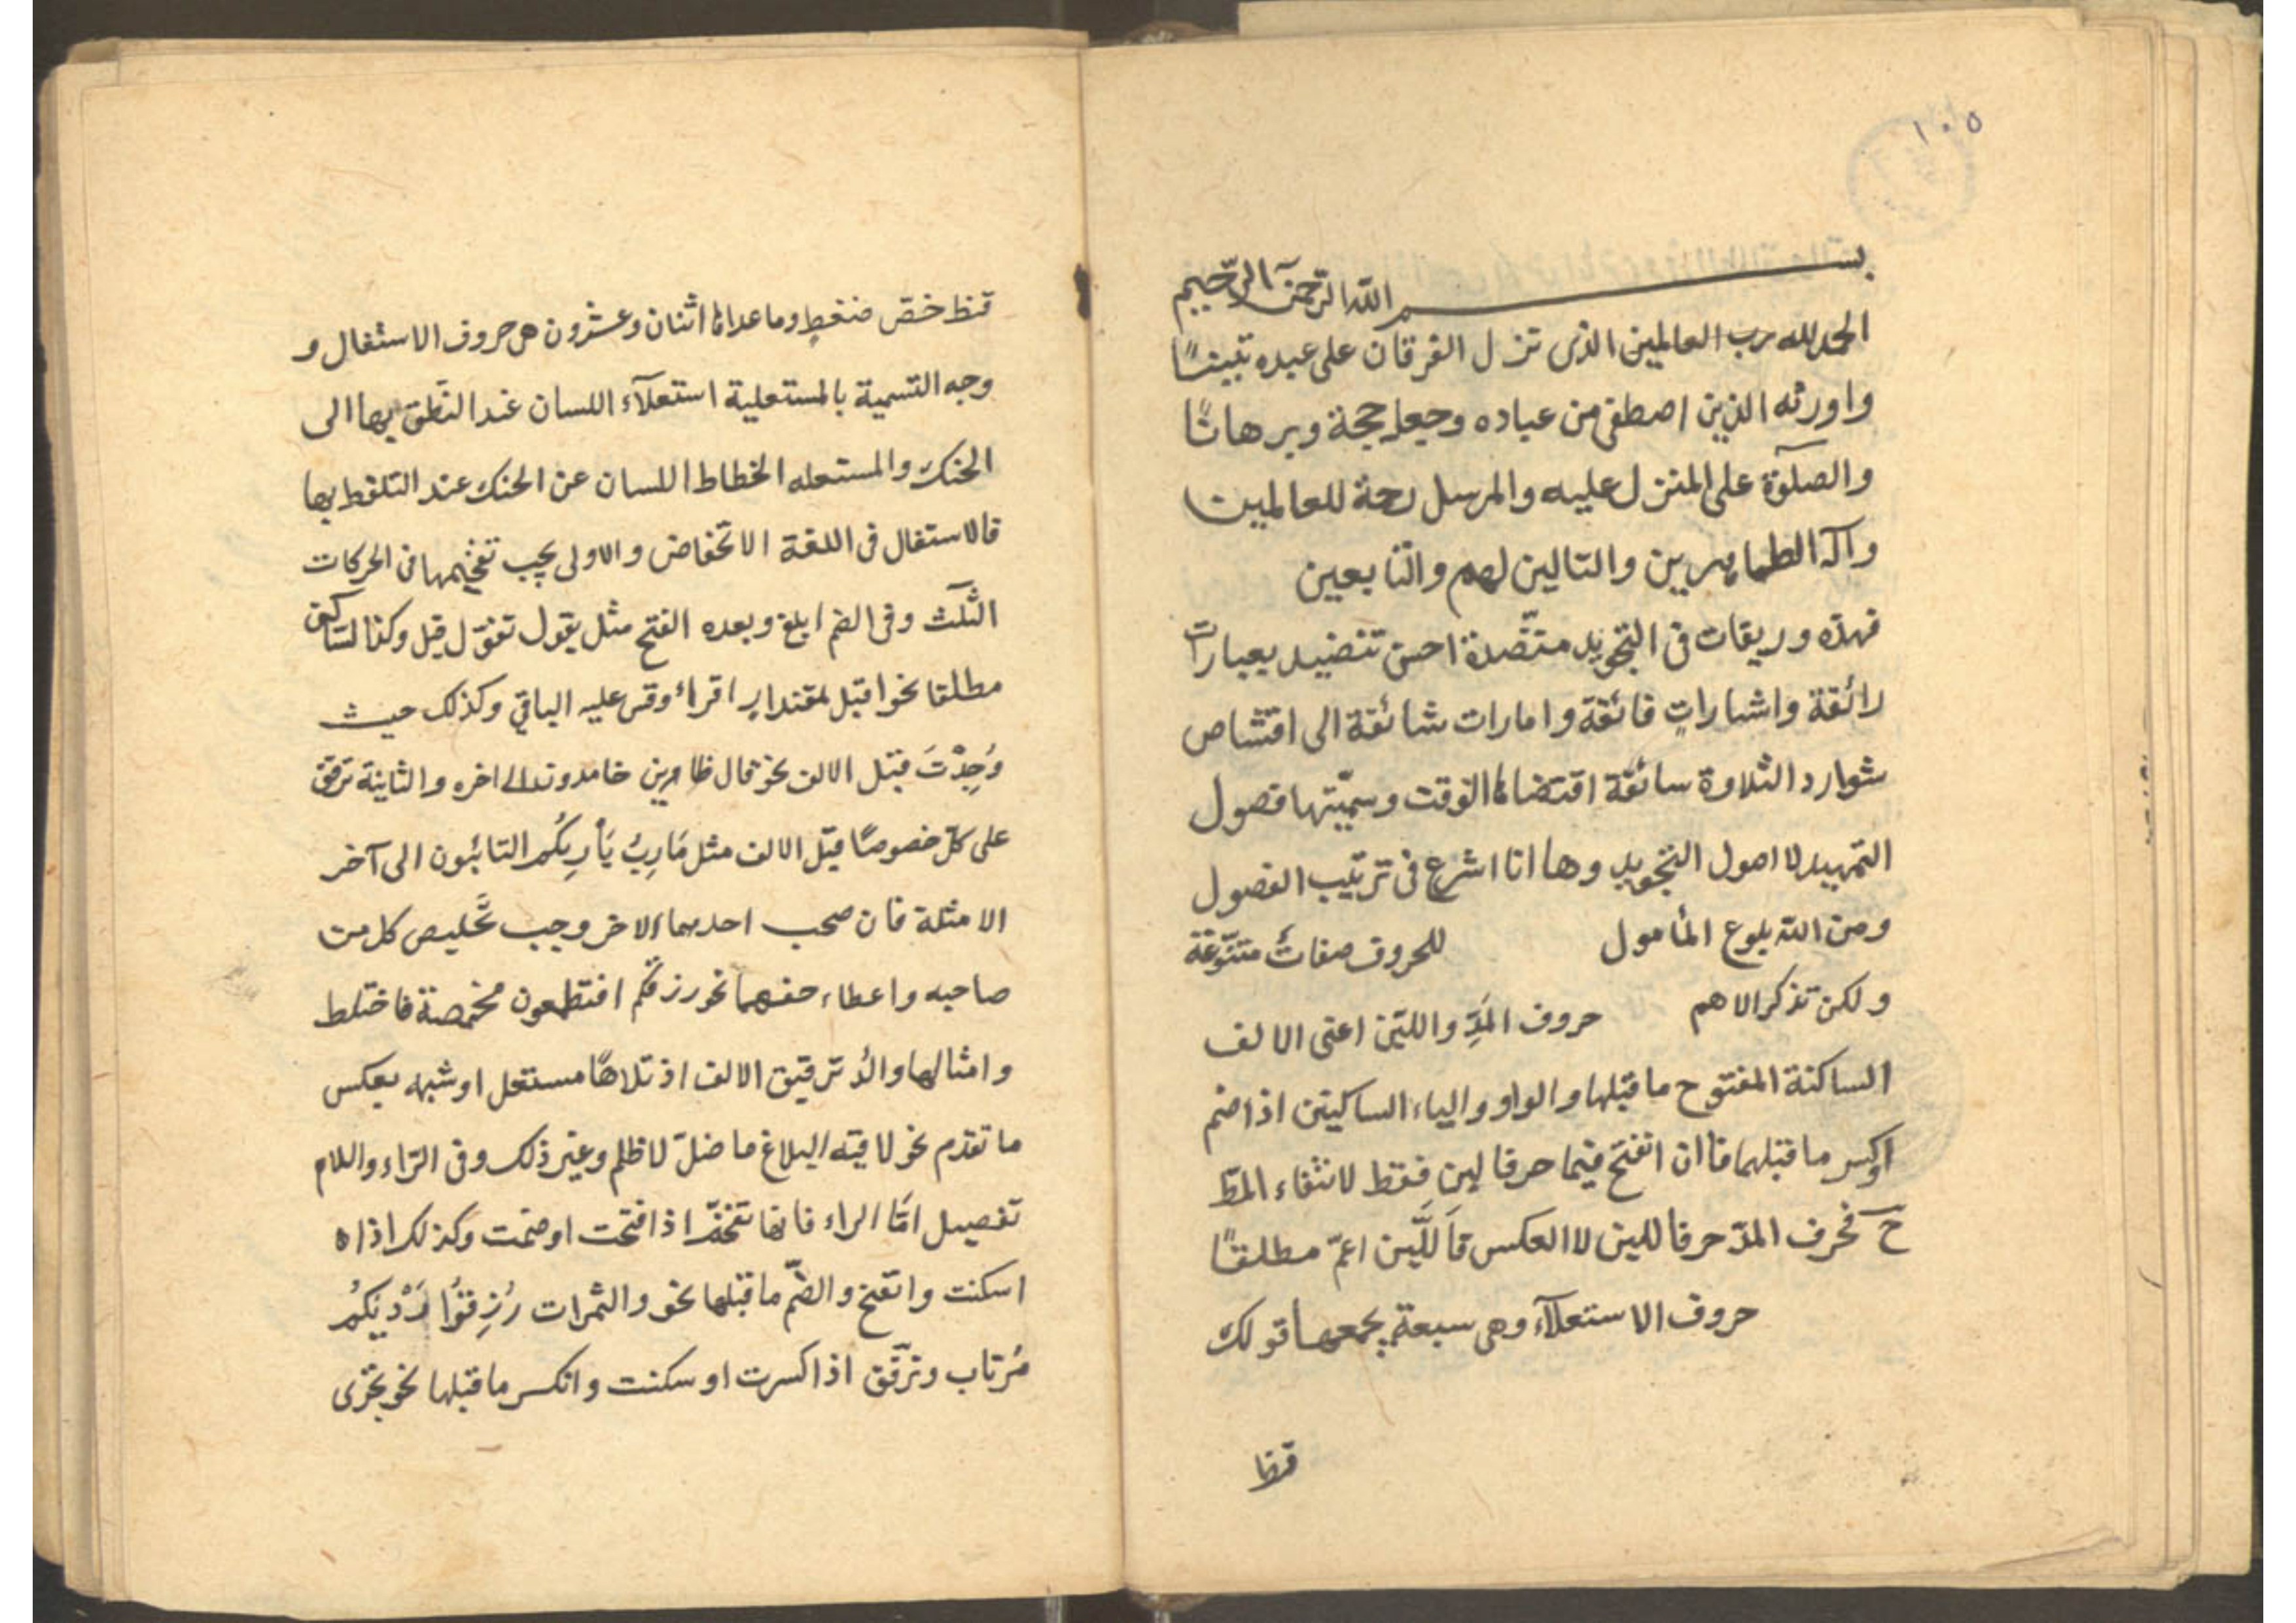 ١٠٥
بسم الله الرّحمن الرّحيم
الحمد لله رب العالمين الذى نزل الفرقان على عبده تبيانًا
واورثه الذين اصطفى من عباده وجعله حجة وبرهانًا
والصلوٓة على المنزل عليه والمرسل رحمة للعالمين
وآله الطاهرين والتالين لهم والتابعين
فهذه وريقات فى التجويد منضّدة احسن تنضيد بعبارات
رائقة واشاراتٍ فائقة وامارات شائقة الى اقتناص
شوارد التلاوة سائقة اقتضاها الوقت وسمّيتها فصول
التمهيد لاصول التجويد وها انا اشرع فى ترتيب الفصول
ومن الله بلوغ المأمول للحروف صفاتٌ متنوّعة
ولكن نذكر الاهم حروف المَدِّ واللين اعنى الالف
الساكنة المفتوح ما قبلها والواو والياء الساكنين اذا ضم
اوكسر ما قبلهما فاان انفتح فيهما حرفا لين فقط لانتفاء المدّ
حٓ فحرف المدّ حرفا للين لا العكس فاَللَّين اعمّ مطلقًا
حروف الاستعلآء وهى سبعة يجمعها قولك
قظا
قظ خصّ ضغطٍ وما عداها اثنان وعشرون هى حروف الاستفال و
وجه التسمية بالمستعلية استعلآء اللسان عند النّطق بها الى
الحنك والمستعله الخطاط اللسان عن الحنك عند التلفظ بها
فالاستفال فى اللغة الانخفاض والاولى يجب تفخيمها فى الحركات
الثلٰث وفى الضم ابلغ وبعده الفتح مثل يقول تقوّل قيل وكذا لساكن
مطلقا نحو اقبل لمقتدايه اقراء وقس عليه الباقي وكذلك حيث
وُجِدْتَ قبل الالف نحو قال ظاهرين خامدون الى اخره والثانية ترقق
على كلّ خصوصًا قبل الالف مثل مَارِبُ يَأْرِيكُم التائبون الى آخر
الامثلة فان صحب احديهما الاخر وجب تخليص كل من
صاحبه واعطاء حقهما نحو رزقكم افتطمعون مخمصة فاختلط
وامثالها والّد ترقيق الالف اذ تلاها مستعل اوشبهه بعكس
ما تقدم نحو لاقيه البلاغ ما ضلّ لا ظلم وغير ذلك وفى الرّاء واللام
تفصيل امّا الراء فانها تفخّم اذا فتحت او ضمت وكذلك اذا ه
اسكنت وانفتح والضّم ما قبلها نحو والثمرات رُزِقُوا يَرْدِيَكُمْ
مُرتاب وترّقق اذا كسرت او سكنت وانكسر ما قبلها نحو تجرى